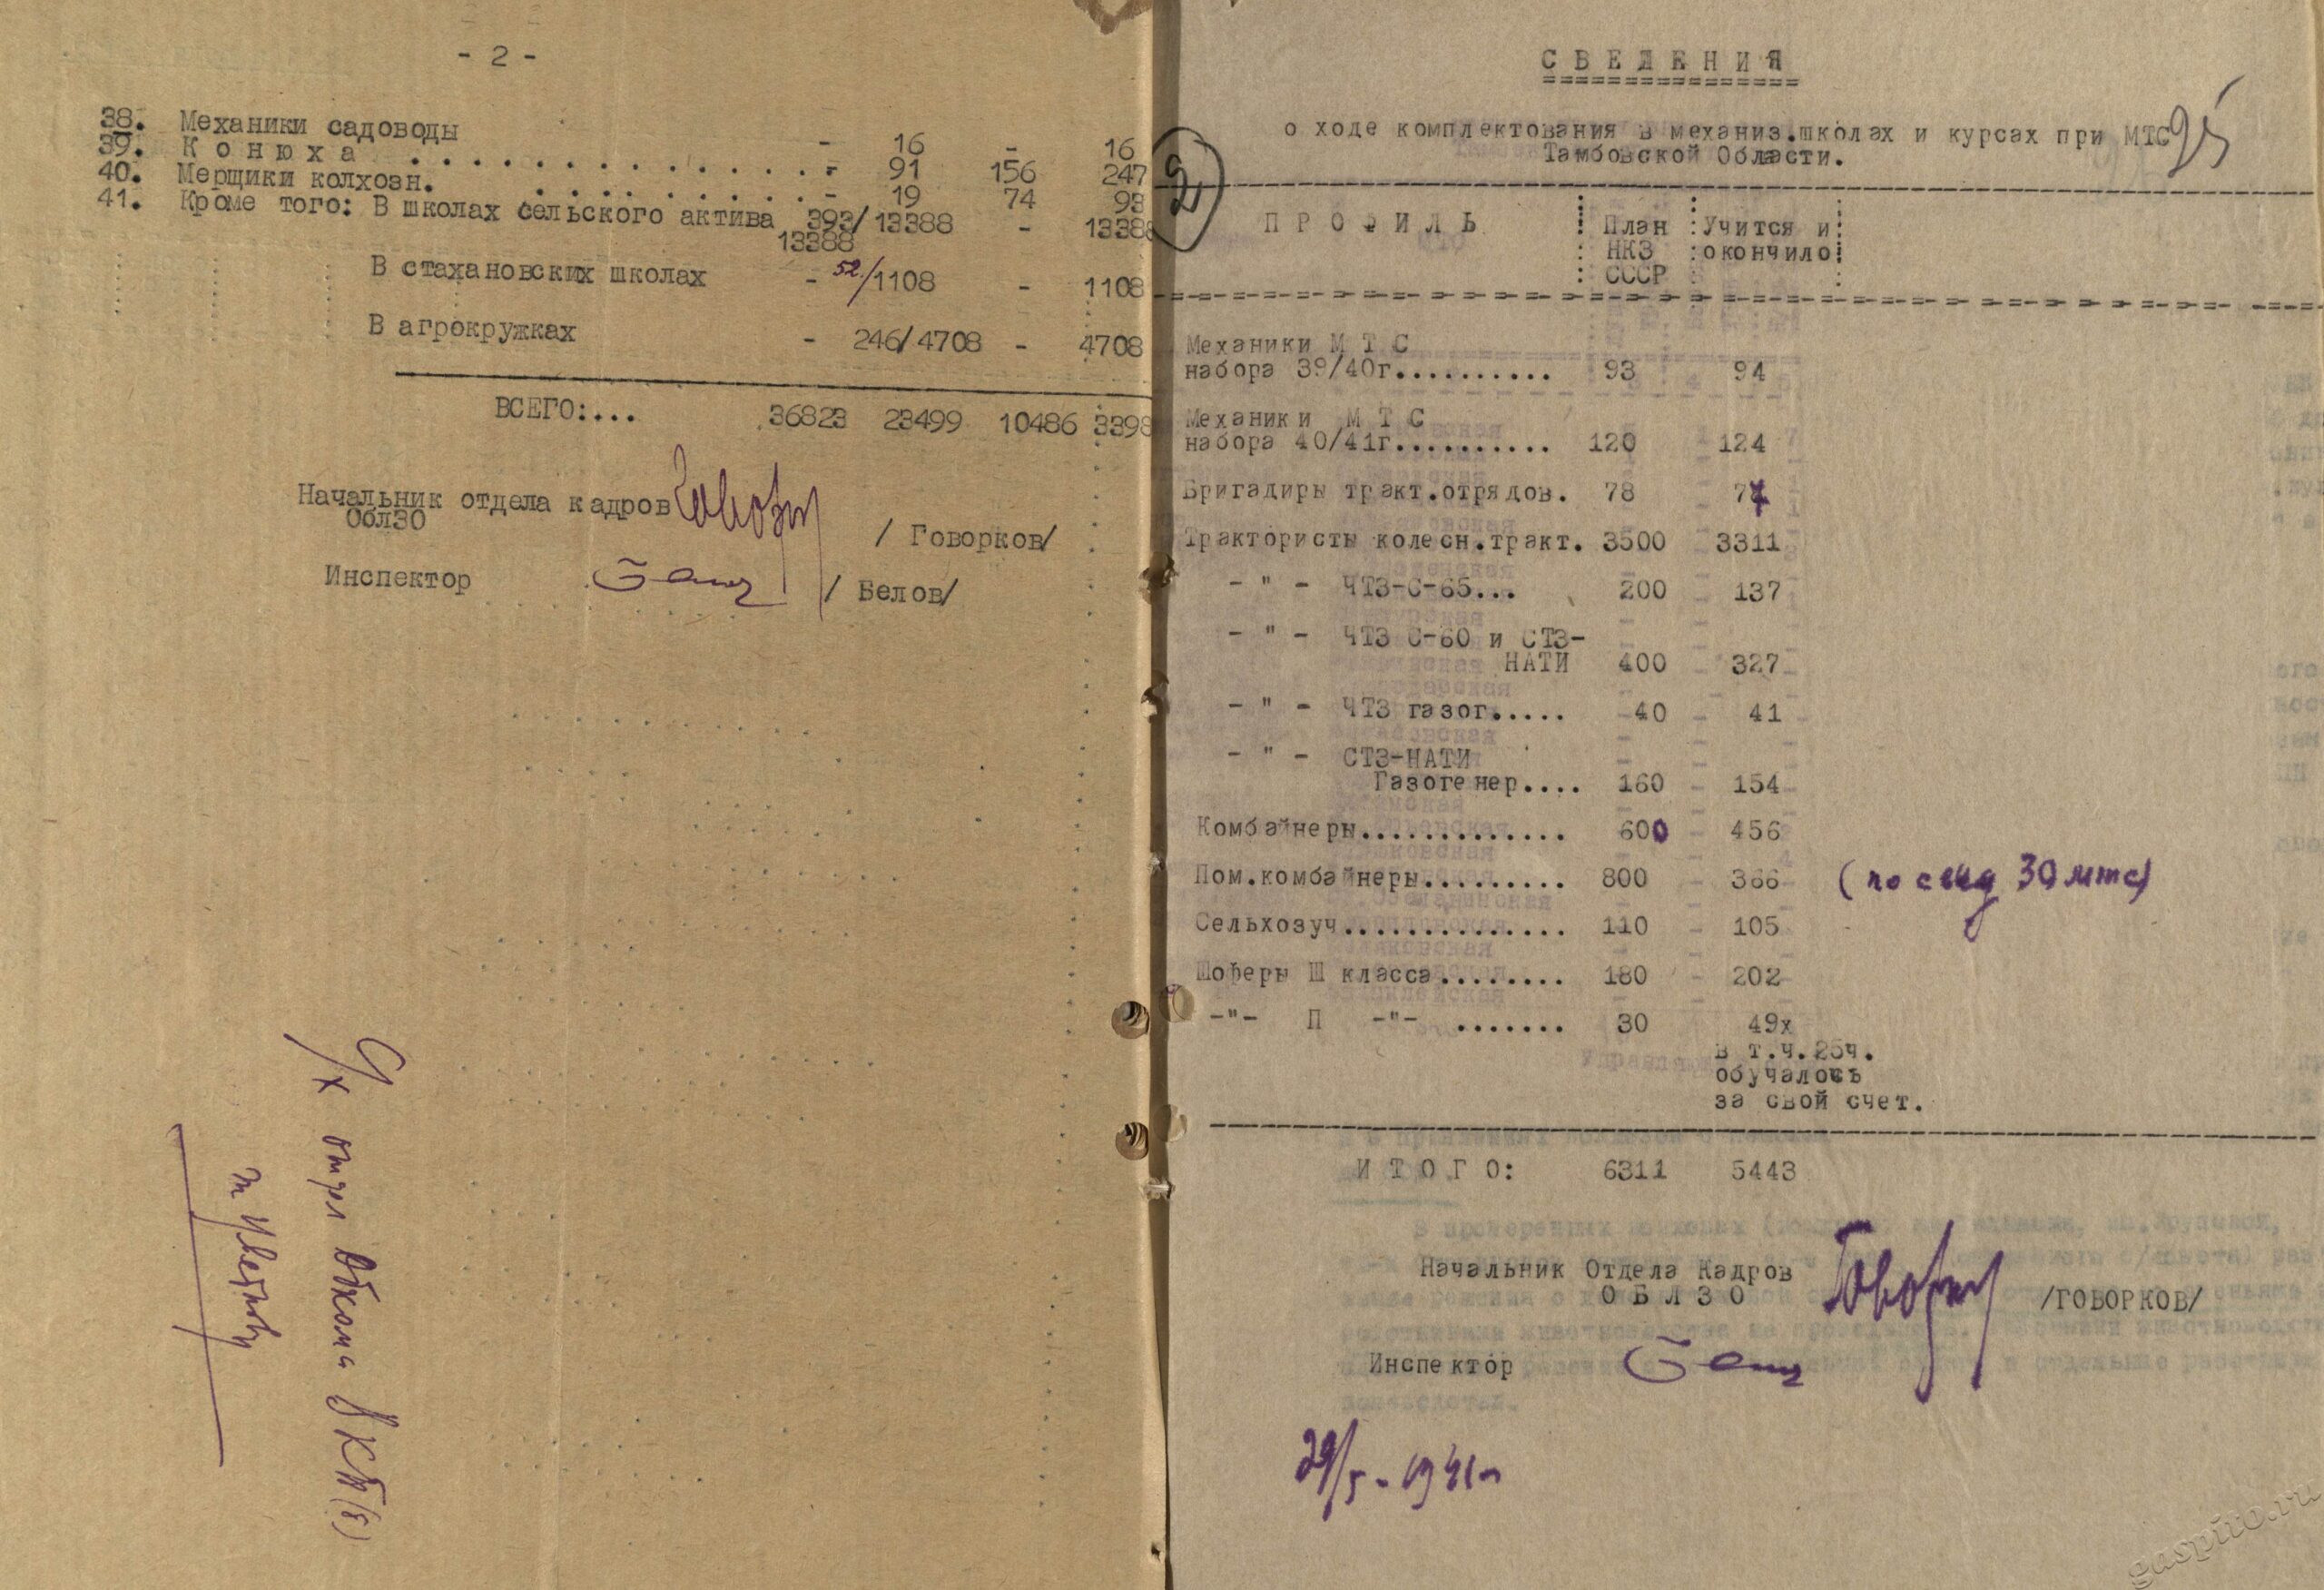 - 2 -
38. Механики садоводы - 16 - 16
39. К о н ю х а . . . . . . . . . . . . . - 91 156 247
40. Мерщики колхозн. . . . . . . . . . - 19 74 93
41. Кроме того: В школах сельского актива 393/ 13388 - 13388
13388
В стахановских школах - 52/1108 - 1108
В агрокружках - 246/4708 - 4708
ВСЕГО:... 36823 23499 10486 3398
Начальник отдела кадров
ОблЗО
/ Говорков/
Инспектор / Белов/
С/х отдел Обкома ВКП(б)
С В Е Д Е Н И Я
о ходе комплектования в механиз.школах и курсах при МТС
Тамбовской Области.
95
П Р О Ф И Л Ь : План : Учится и:
: НКЗ : окончило:
: СССР :
Механики М Т С
набора 39/40г.......... 93 94
Механики М Т С
набора 40/41г.......... 120 124
Бригадиры тракт.отрядов. 78 77
Трактористы колесн.тракт. 3500 3311
- " - ЧТЗ-С-65... 200 137
- " - ЧТЗ С-60 и СТЗ-
НАТИ 400 327
- " - ЧТЗ газог..... 40 41
- " - СТЗ-НАТИ
Газогенер.... 160 154
Комбайнеры............. 600 456
Пом.комбайнеры......... 800 366 (по свед 30 мтс)
Сельхозуч.............. 110 105
Шоферы Ш класса........ 180 202
-"- П -"- ....... 30 49х
в т.ч.25ч.
обучалось
за свой счет.
И Т О Г О: 6311 5443
Начальник Отдела Кадров
О Б Л З О /ГОВОРКОВ/
Инспектор
29/5-1941г
gaspito.ru